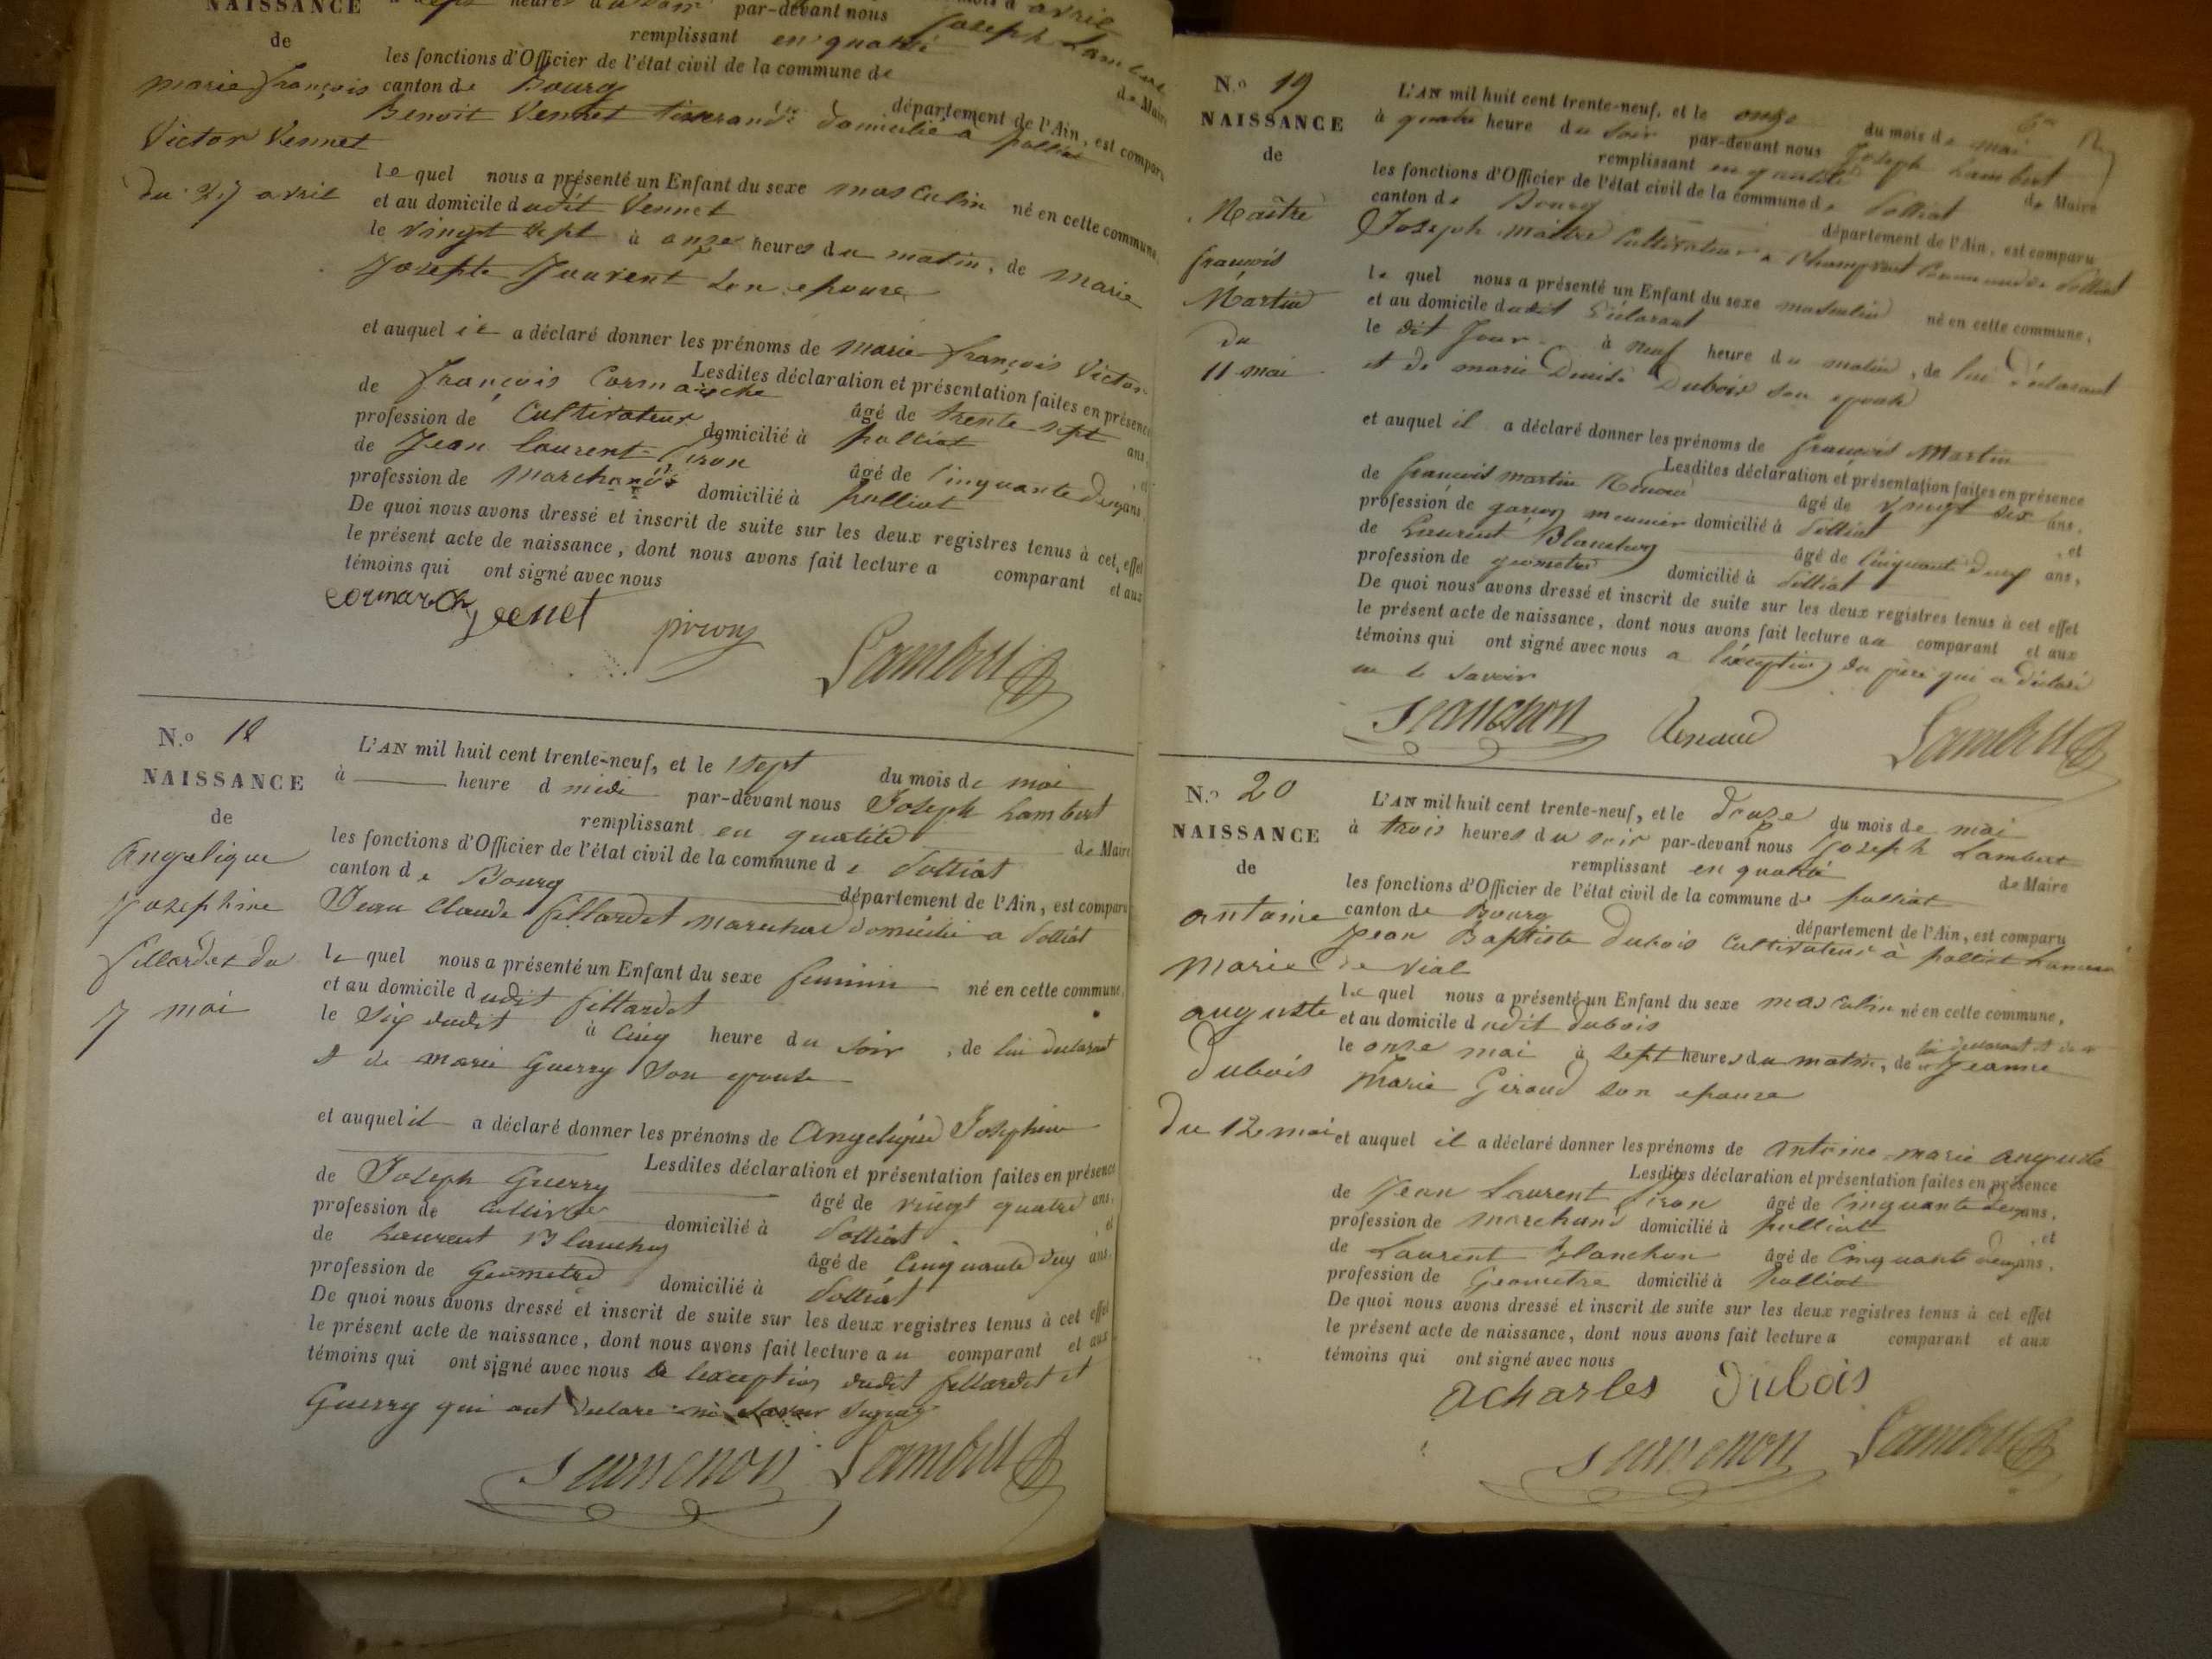 NAISSANCE
de
marie françois
Victor Vennet
du 27 avril
heures du par-devant nous Joseph Lambert
remplissant en qualité de Maire
les fonctions d'Officier de l'état civil de la commune de
canton de Bourg département de l'Ain, est comparu
Benoit Vennet tisserand domicilié à polliat
le quel nous a présenté un Enfant du sexe masculin né en cette commune,
et au domicile dudit Vennet
le vingt sept à onze heures du matin, de Marie
Josephte Jouvent son epouse
et auquel il a déclaré donner les prénoms de marie françois Victor
Lesdites déclaration et présentation faites en présence
de françois Cormarèche âgé de trente sept ans,
profession de Cultivateur domicilié à polliat et
de Jean Laurent Piron âgé de Cinquante deux ans,
profession de marchand domicilié à polliat
De quoi nous avons dressé et inscrit de suite sur les deux registres tenus à cet effet
le présent acte de naissance, dont nous avons fait lecture a comparant et aux
témoins qui ont signé avec nous
piron
Lambert
N.o 18
NAISSANCE
de
Angelique
Josephine
fillardet du
7 mai
L'AN mil huit cent trente-neuf, et le sept du mois de mai
à heure d midi par-devant nous Joseph Lambert
remplissant en qualité de Maire
les fonctions d'Officier de l'état civil de la commune de Polliat
canton de Bourg département de l'Ain, est comparu
Jean Claude fillardet marechal domicilié a Polliat
le quel nous a présenté un Enfant du sexe feminin né en cette commune,
et au domicile dudit fillardet
le Six dudit à Cinq heure du soir, de lui declarant
et de marie Guerry son epouse
et auquel il a déclaré donner les prénoms de Angelique Josephine
Lesdites déclaration et présentation faites en présence
de Joseph Guerry âgé de vingt quatre ans,
profession de domicilié à Polliat et
de Laurent Blanchon âgé de Cinquante deux ans,
profession de Géometre domicilié à Polliat
De quoi nous avons dressé et inscrit de suite sur les deux registres tenus à cet effet
le présent acte de naissance, dont nous avons fait lecture au comparant et aux
témoins qui ont signé avec nous a lexception dudit fillardet et
Guerry qui ont declaré ne savoir signer
Blanchon Lambert
N.o 19
NAISSANCE
de
Maître
françois
Martin
du
11 mai
L'AN mil huit cent trente-neuf, et le onze du mois de mai
à quatre heure du soir par-devant nous Joseph Lambert
remplissant en qualité de Maire
les fonctions d'Officier de l'état civil de la commune de Polliat
canton de Bourg département de l'Ain, est comparu
Joseph Maitre Cultivateur a Champvent Commune de Polliat
le quel nous a présenté un Enfant du sexe masculin né en cette commune,
et au domicile dudit déclarant
le dit Jour à neuf heure du matin, de lui déclarant
et de marie Denise Dubois son epouse
et auquel il a déclaré donner les prénoms de françois Martin
Lesdites déclaration et présentation faites en présence
de françois martin Renaud âgé de vingt six ans,
profession de garçon meunier domicilié à Polliat, et
de Laurent Blanchon âgé de Cinquante deux ans,
profession de géometre domicilié à Polliat
De quoi nous avons dressé et inscrit de suite sur les deux registres tenus à cet effet
le présent acte de naissance, dont nous avons fait lecture au comparant et aux
témoins qui ont signé avec nous a l'exception du père qui a déclaré
ne le savoir
Blanchon Renaud Lambert
N.o 20
NAISSANCE
de
antoine
Marie
auguste
Dubois
Du 12 mai
L'AN mil huit cent trente-neuf, et le douze du mois de mai
à trois heures du soir par-devant nous Joseph Lambert
remplissant en qualité de Maire
les fonctions d'Officier de l'état civil de la commune de polliat
canton de Bourg département de l'Ain, est comparu
Jean Baptiste Dubois Cultivateur à polliat hameau
de vial
le quel nous a présenté un Enfant du sexe masculin né en cette commune,
et au domicile dudit dubois
le onze mai à sept heures du matin, de lui declarant et de Jeanne
Marie Giroud son epouse
et auquel il a déclaré donner les prénoms de antoine marie auguste
Lesdites déclaration et présentation faites en présence
de Jean Laurent Piron âgé de Cinquante deux ans,
profession de marchand domicilié à polliat, et
de Laurent Blanchon âgé de Cinquante deux ans,
profession de Geometre domicilié à polliat
De quoi nous avons dressé et inscrit de suite sur les deux registres tenus à cet effet
le présent acte de naissance, dont nous avons fait lecture a comparant et aux
témoins qui ont signé avec nous
acharles Dubois
Blanchon Lambert